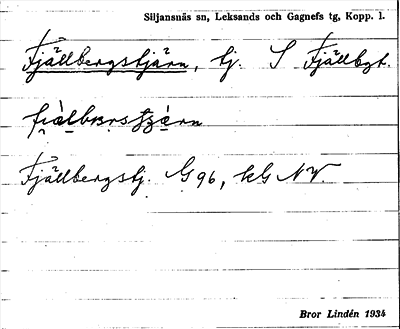 Siljansnäs sn, Leksands och Gagnefs tg, Kopp. l.
Fjällbergstjärn, tj. S Fjällbgt.
Fjällbergstj. G96, kG NV.
Bror Lindén 1934